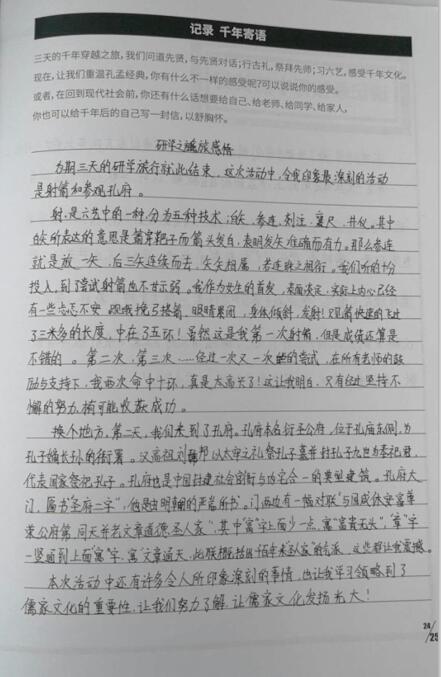 记录 千年寄语
三天的千年穿越之旅，我们问道先贤，与先贤对话；行古礼，祭拜先师；习六艺，感受千年文化。
现在，让我们重温孔孟经典，你有什么不一样的感受呢？可以说说你的感受。
或者，在回到现代社会前，你还有什么话想要给自己、给老师、给同学、给家人，
你也可以给千年后的自己写一封信，以舒胸怀。
研学之旅感悟
为期三天的研学旅行就此结束，这次活动中，令我印象最深刻的活动
是射箭和参观孔府。
射，是六艺中的一种，分为五种技术：白矢、参连、剡注、襄尺、井仪。其中
白矢所表达的意思是箭穿靶子而箭头发白，表明发矢准确而有力。那么参连
就是放一矢，后三矢连续而去，矢矢相属，若连珠之相衔。我们听的十分
投入，到了尝试射箭也不甘示弱。我作为女生的首发，表面淡定，实际上内心已经
有一些忐忑不安。我挽弓搭箭，眼睛紧闭，身体倾斜，发射！只见箭快速的飞过
了三米多的长度，中在了五环！虽然这是我第一次射箭，但是成绩还算是
不错的。第二次，第三次……经过一次又一次的尝试，在所有老师的鼓
励与支持下，我两次命中十环，真是太高兴了！这让我明白，只有经过坚持不
懈的努力，才可能收获成功。
换个地方，第二天，我们来到了孔府。孔府本名衍圣公府，位于孔庙东侧，为
孔子嫡长孙的衙署。汉高祖刘邦以太牢之礼祭孔子墓并封孔子九世为奉祀君，
代表国家祭祀孔子。孔府也是中国封建社会官衙与内宅合一的典型建筑。孔府大
门，匾书“圣府”二字，他是由明朝的严嵩所书。门两边有一幅对联“与国咸休安富尊
荣公府第，同天并老文章道德圣人家”，其中“富”字上面少一点，寓“富贵无头”，“章”字
一竖通到上面，寓“文章通天”，这些都让我震撼。
本次活动中还有许多令人所印象深刻的事情，也让我学习领略到了
儒家文化的重要性，让我们努力了解，让儒家文化发扬光大！
24/25